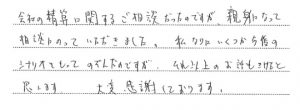 会社の精算に関するご相談だったのですが、親身になって
相談にのっていただきました。私なりにいくつか今後の
シナリオをもってのぞんだのですが、それ以上のお話もできたと
思います 大変感謝しております。